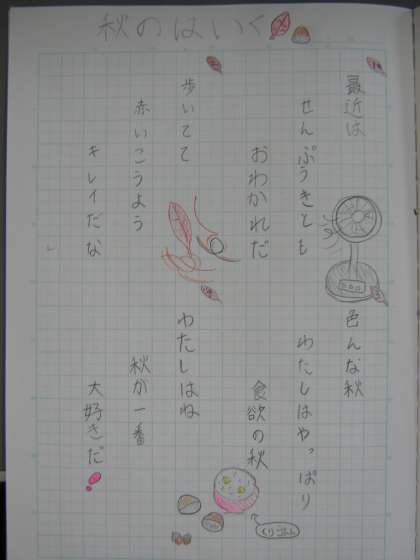 秋のはいく
最近は
せんぷうきとも
おわかれだ
歩いてて
赤いこうよう
キレイだな
色んな秋
わたしはやっぱり
食欲の秋
わたしはね
秋が一番
大好きだ!
くりごはん